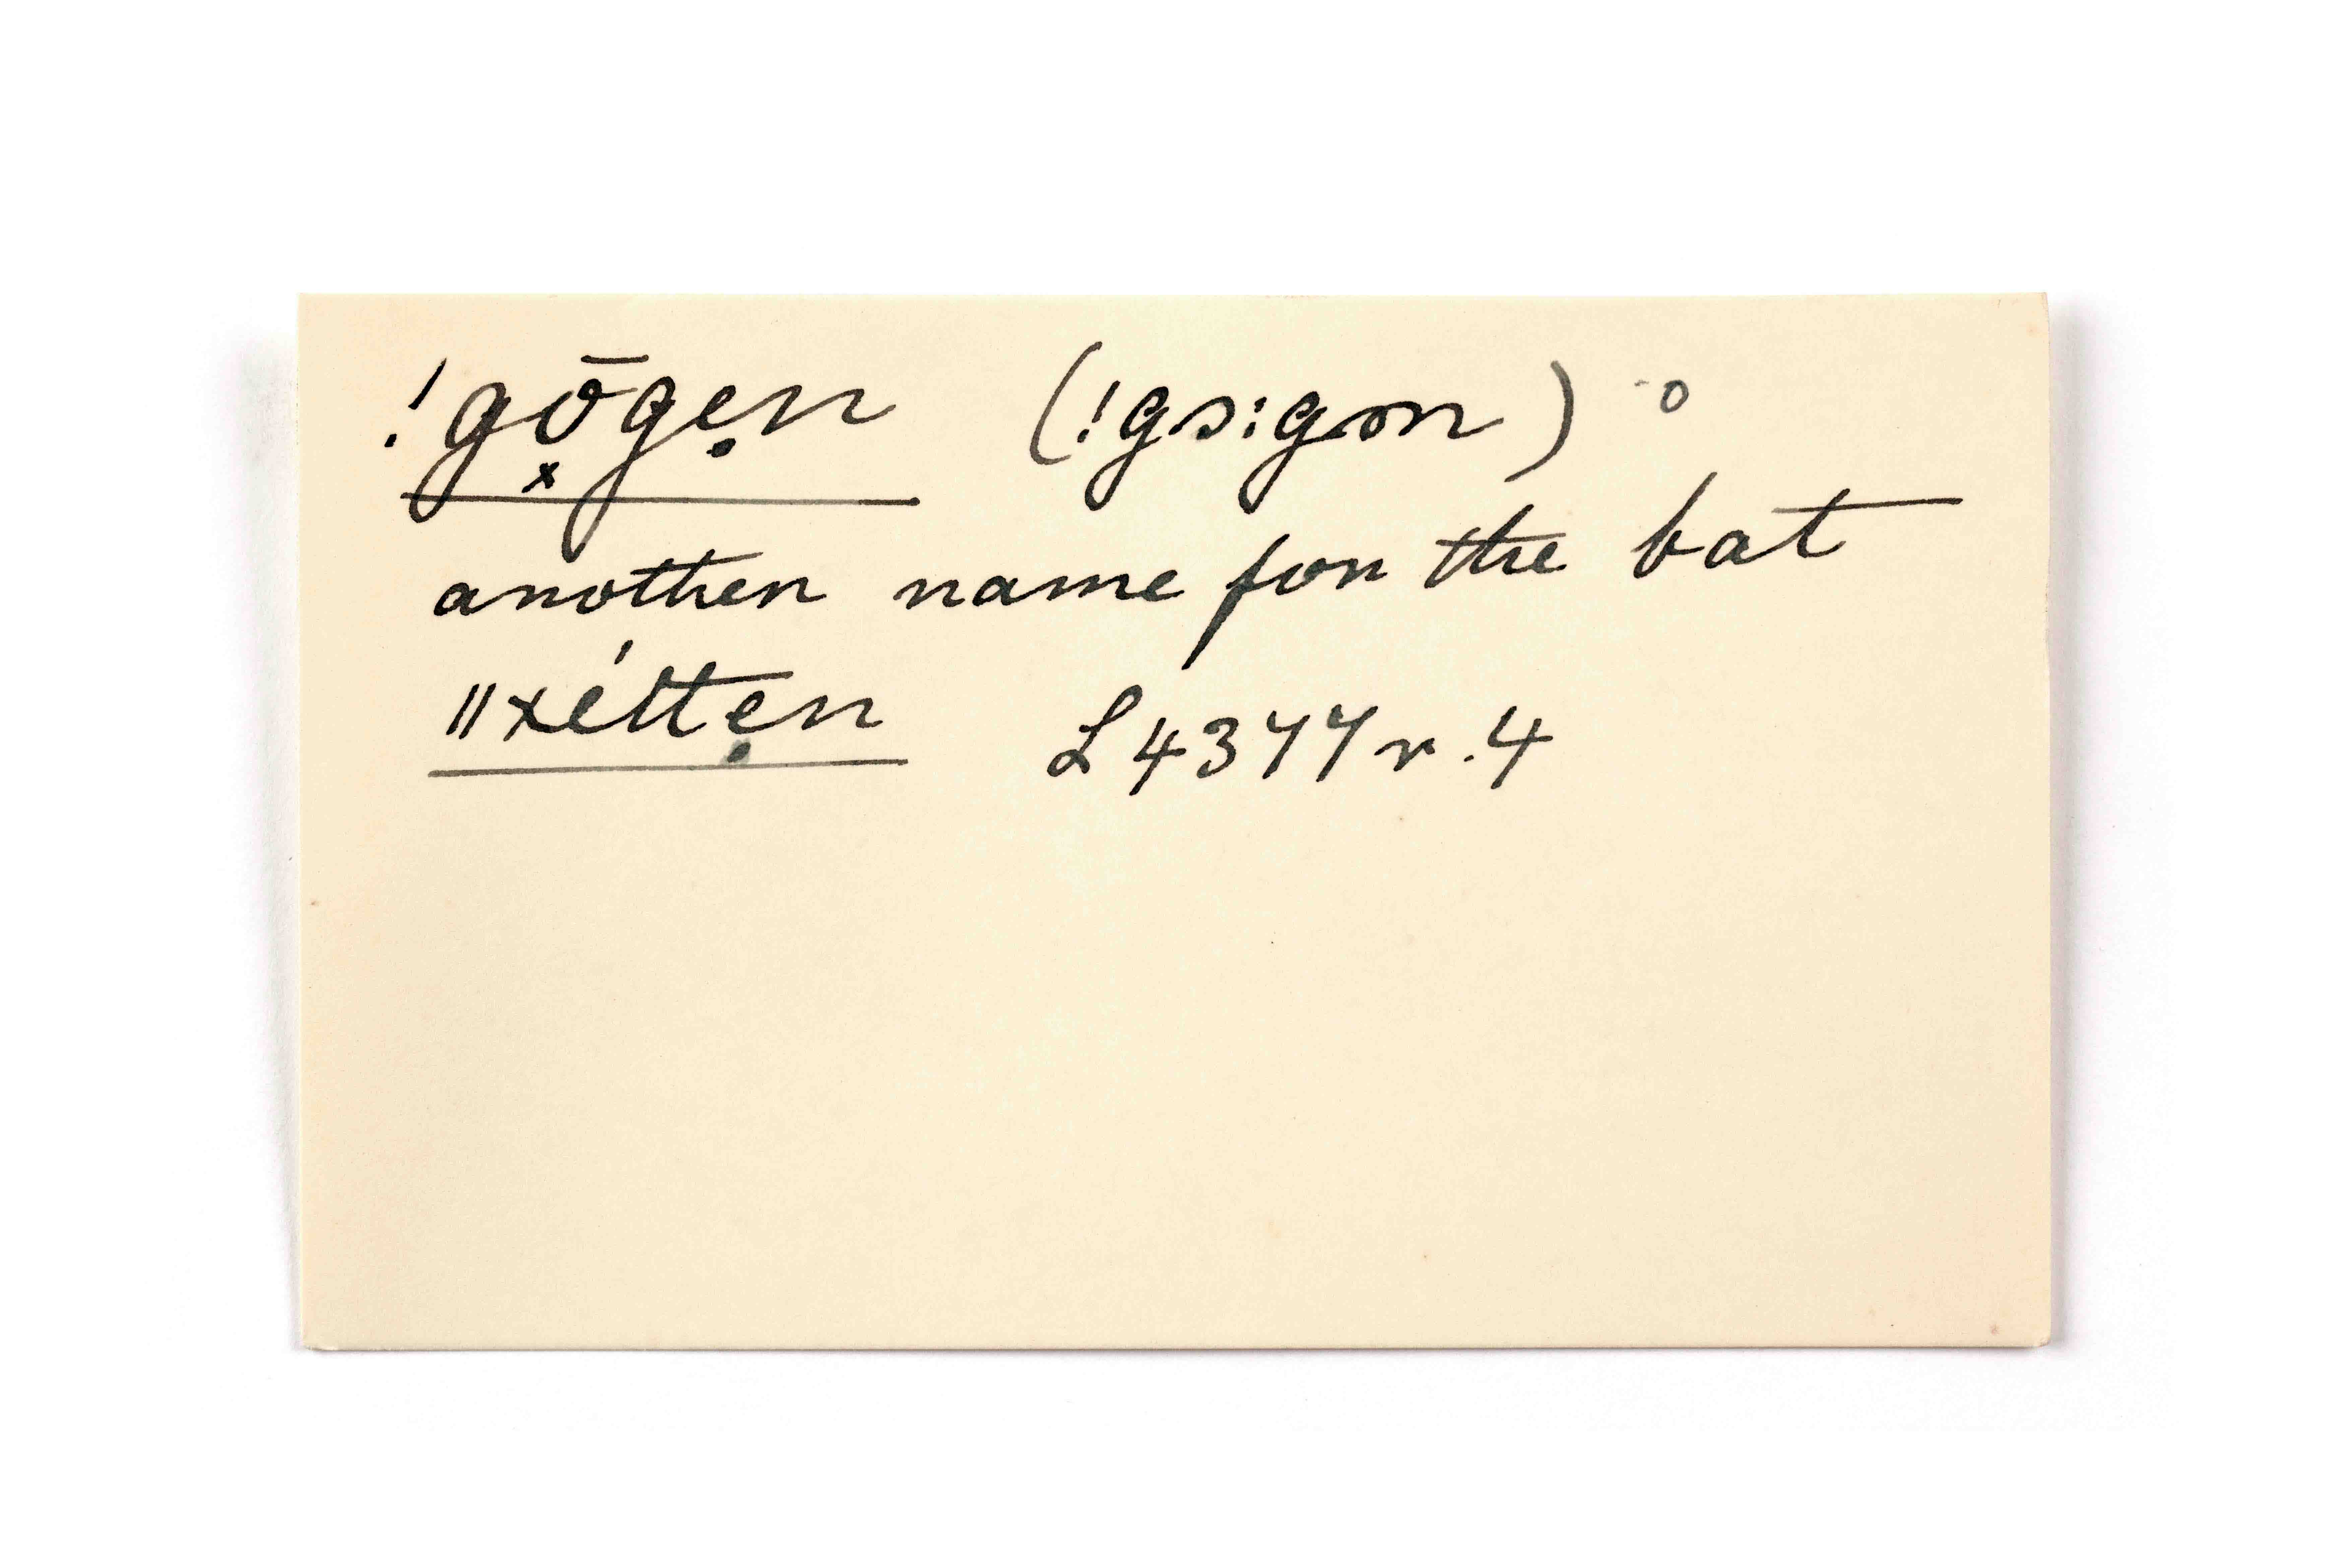 !gō͓gẹn (!gɔ:gən) o
another name for the bat
ǁxéttẹn L 4377 r. 4